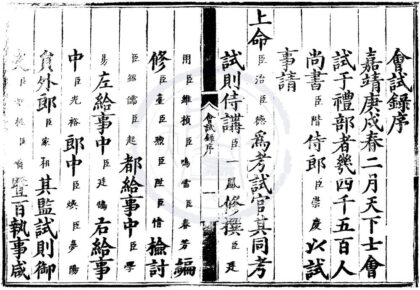 會試錄序
嘉靖庚戌春二月天下士會
試于禮部者幾四千五百人
尚書臣階侍郎臣崇慶以試
事請
上命
臣治臣德爲考試官其同考
試則侍講臣一鳳修撰臣
會試錄序
用臣維楨臣鳴雷臣春芳編
修臣臺臣臣陞臣惟檢討
臣鎔臣儒臣起都給事中臣學
易左給事中臣廷鶴右給事
中臣光裕郎中臣煥臣夢陽
員外郎臣家相其監試則御
暨百執事咸